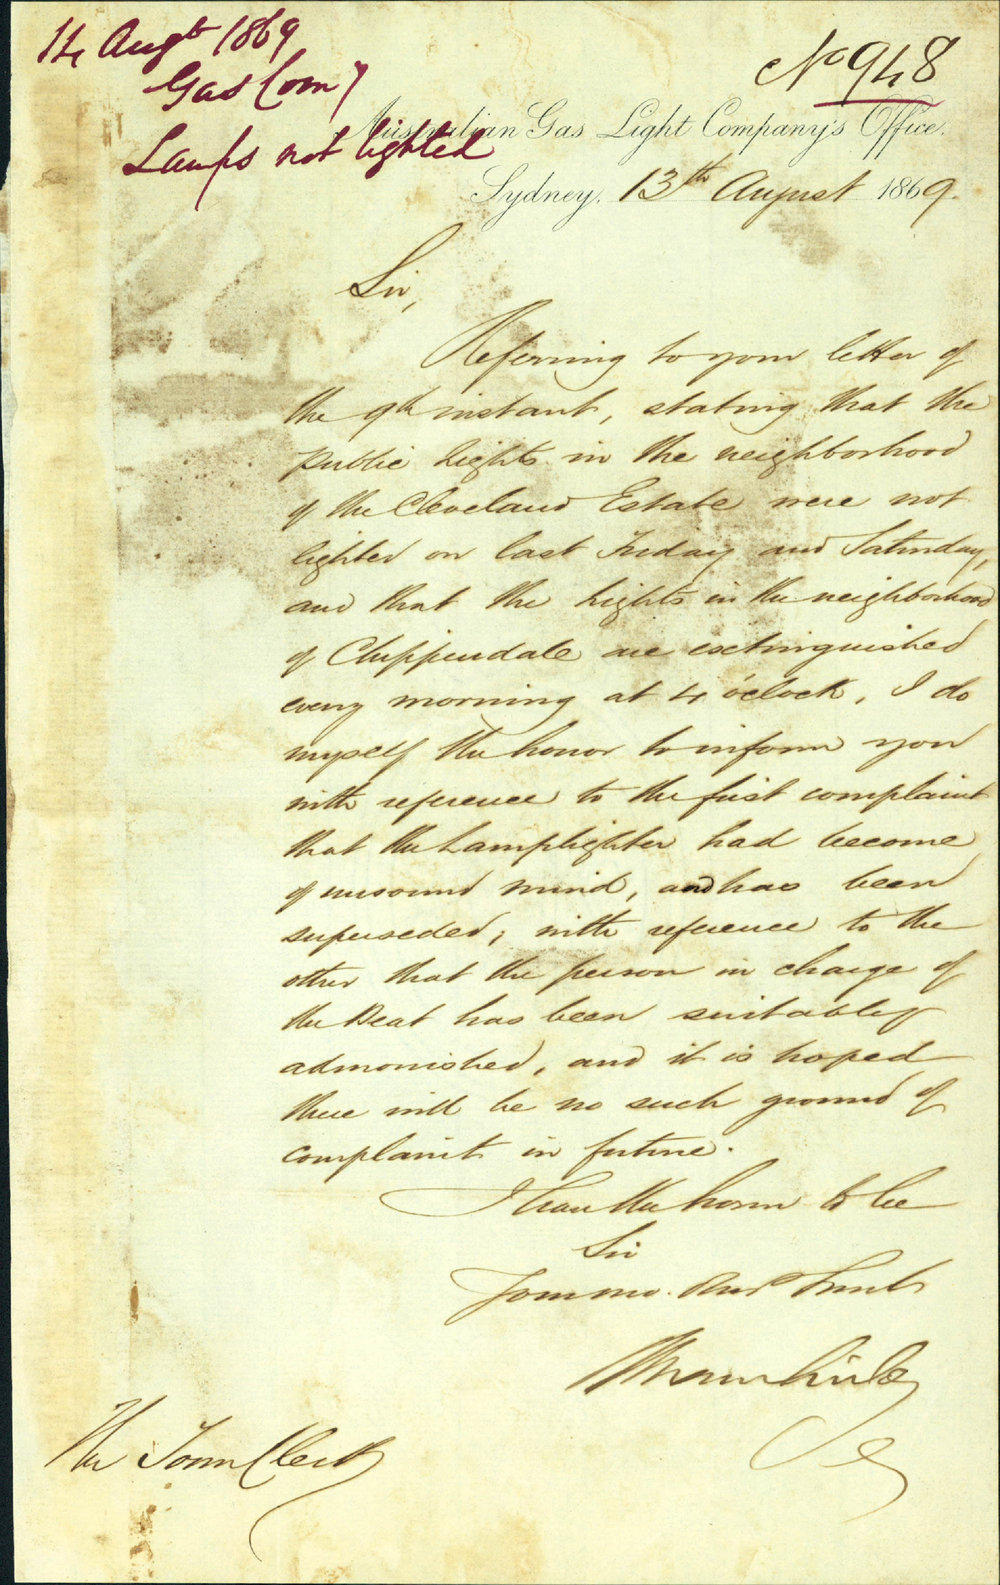 14 Augt 1869
Gas Comy
Lamps not lighted
No 948
Australian Gas Light Company's Office.
Sydney, 13th August 1869.
Sir,
Referring to your letter of
the 9th instant, stating that the
public lights in the neighborhood
of the Cleveland Estate were not
lighted on last Friday and Saturday,
and that the lights in the neighborhood
of Chippendale are extinguished
every morning at 4 o'clock, I do
myself the honor to inform you
with reference to the first complaint
that the Lamplighter had become
of unsound mind, and has been
superseded; with reference to the
other that the person in charge of
the Beat has been suitably
admonished, and it is hoped
there will be no such ground of
complaint in future.
I have the honor to be
Sir
Your mo. Obed Servt
Secy
The Town Clerk